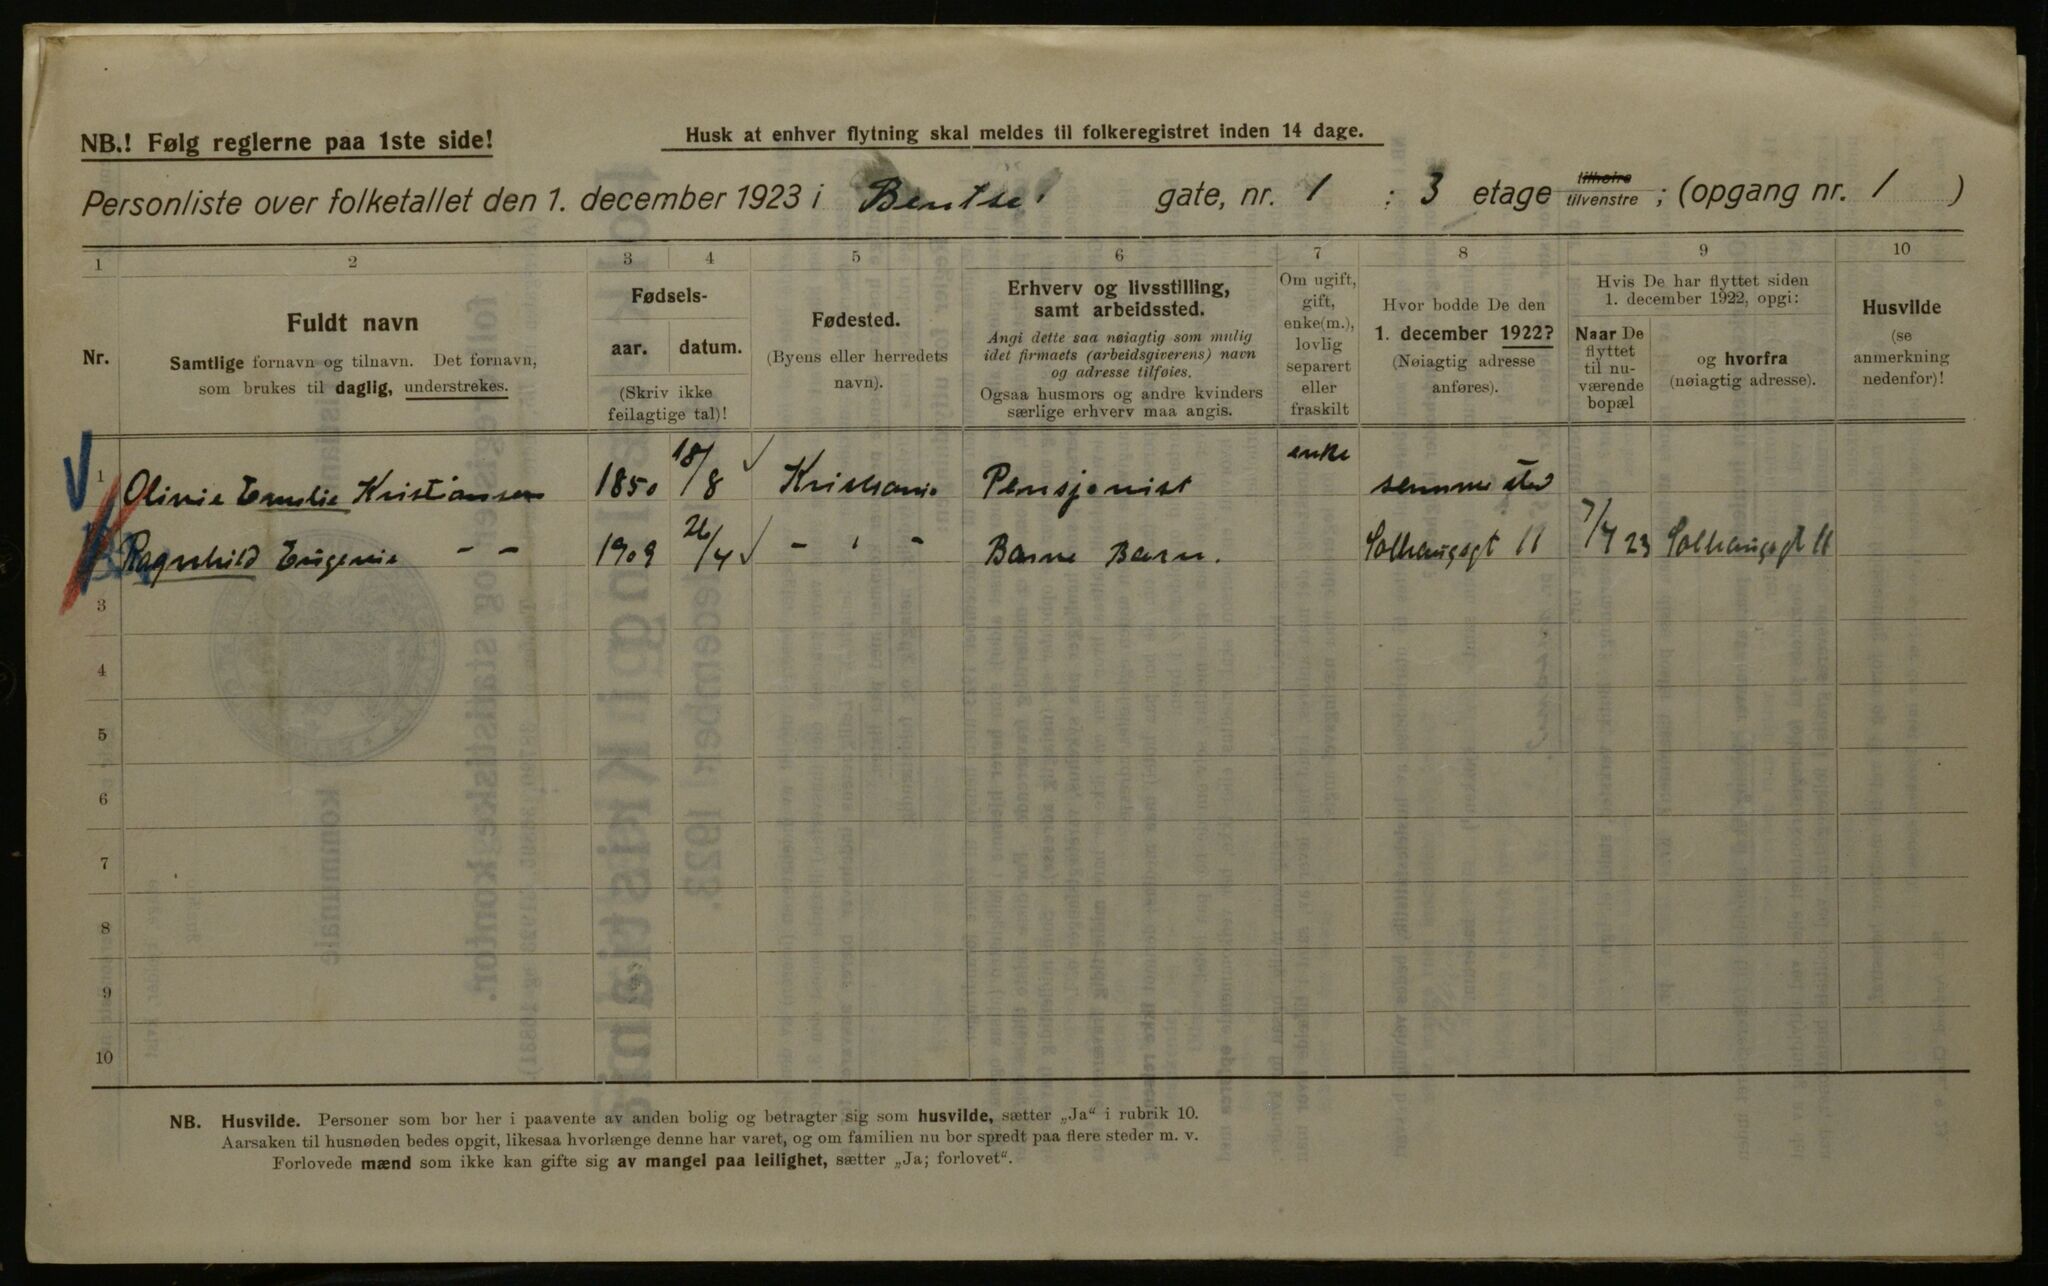 NB.! Følg reglerne paa 1ste side!
Husk at enhver flytning skal meldes til folkeregistret inden 14 dage.
Personliste over folketallet den 1. december 1923 i Bentse gate, nr. 1 : 3 etage tilhøire tilvenstre ; (opgang nr. 1 )
1 2 3 4 5 6 7 8 9 10
Nr.
Fuldt navn
Samtlige fornavn og tilnavn. Det fornavn,
som brukes til daglig, understrekes.
Fødsels-
aar. datum.
(Skriv ikke
feilagtige tal)!
Fødested.
(Byens eller herredets
navn).
Erhverv og livsstilling,
samt arbeidssted.
Angi dette saa nøiagtig som mulig
idet firmaets (arbeidsgiverens) navn
og adresse tilføies.
Ogsaa husmors og andre kvinders
særlige erhverv maa angis.
Om ugift,
gift,
enke(m.),
lovlig
separert
eller
fraskilt
Hvor bodde De den
1. december 1922?
(Nøiagtig adresse
anføres).
Hvis De har flyttet siden
1. december 1922, opgi:
Naar De
flyttet
til nu-
værende
bopæl
og hvorfra
(nøiagtig adresse).
Husvilde
(se
anmerkning
nedenfor)!
1 Olivie Emelie Kristiansen 1850 18/8 Kristiania Pensjonist enke samme sted
Ragnhild Eugenie - - 1909 26/4 - " - Barne Barn. Solhaugsgt 11 7/4 23 Solhaugsgt 11
3
4
5
6
7
8
9
10
NB. Husvilde. Personer som bor her i paavente av anden bolig og betragter sig som husvilde, sætter „Ja“ i rubrik 10.
Aarsaken til husnøden bedes opgit, likesaa hvorlænge denne har varet, og om familien nu bor spredt paa flere steder m. v.
Forlovede mænd som ikke kan gifte sig av mangel paa leilighet, sætter „Ja; forlovet“.